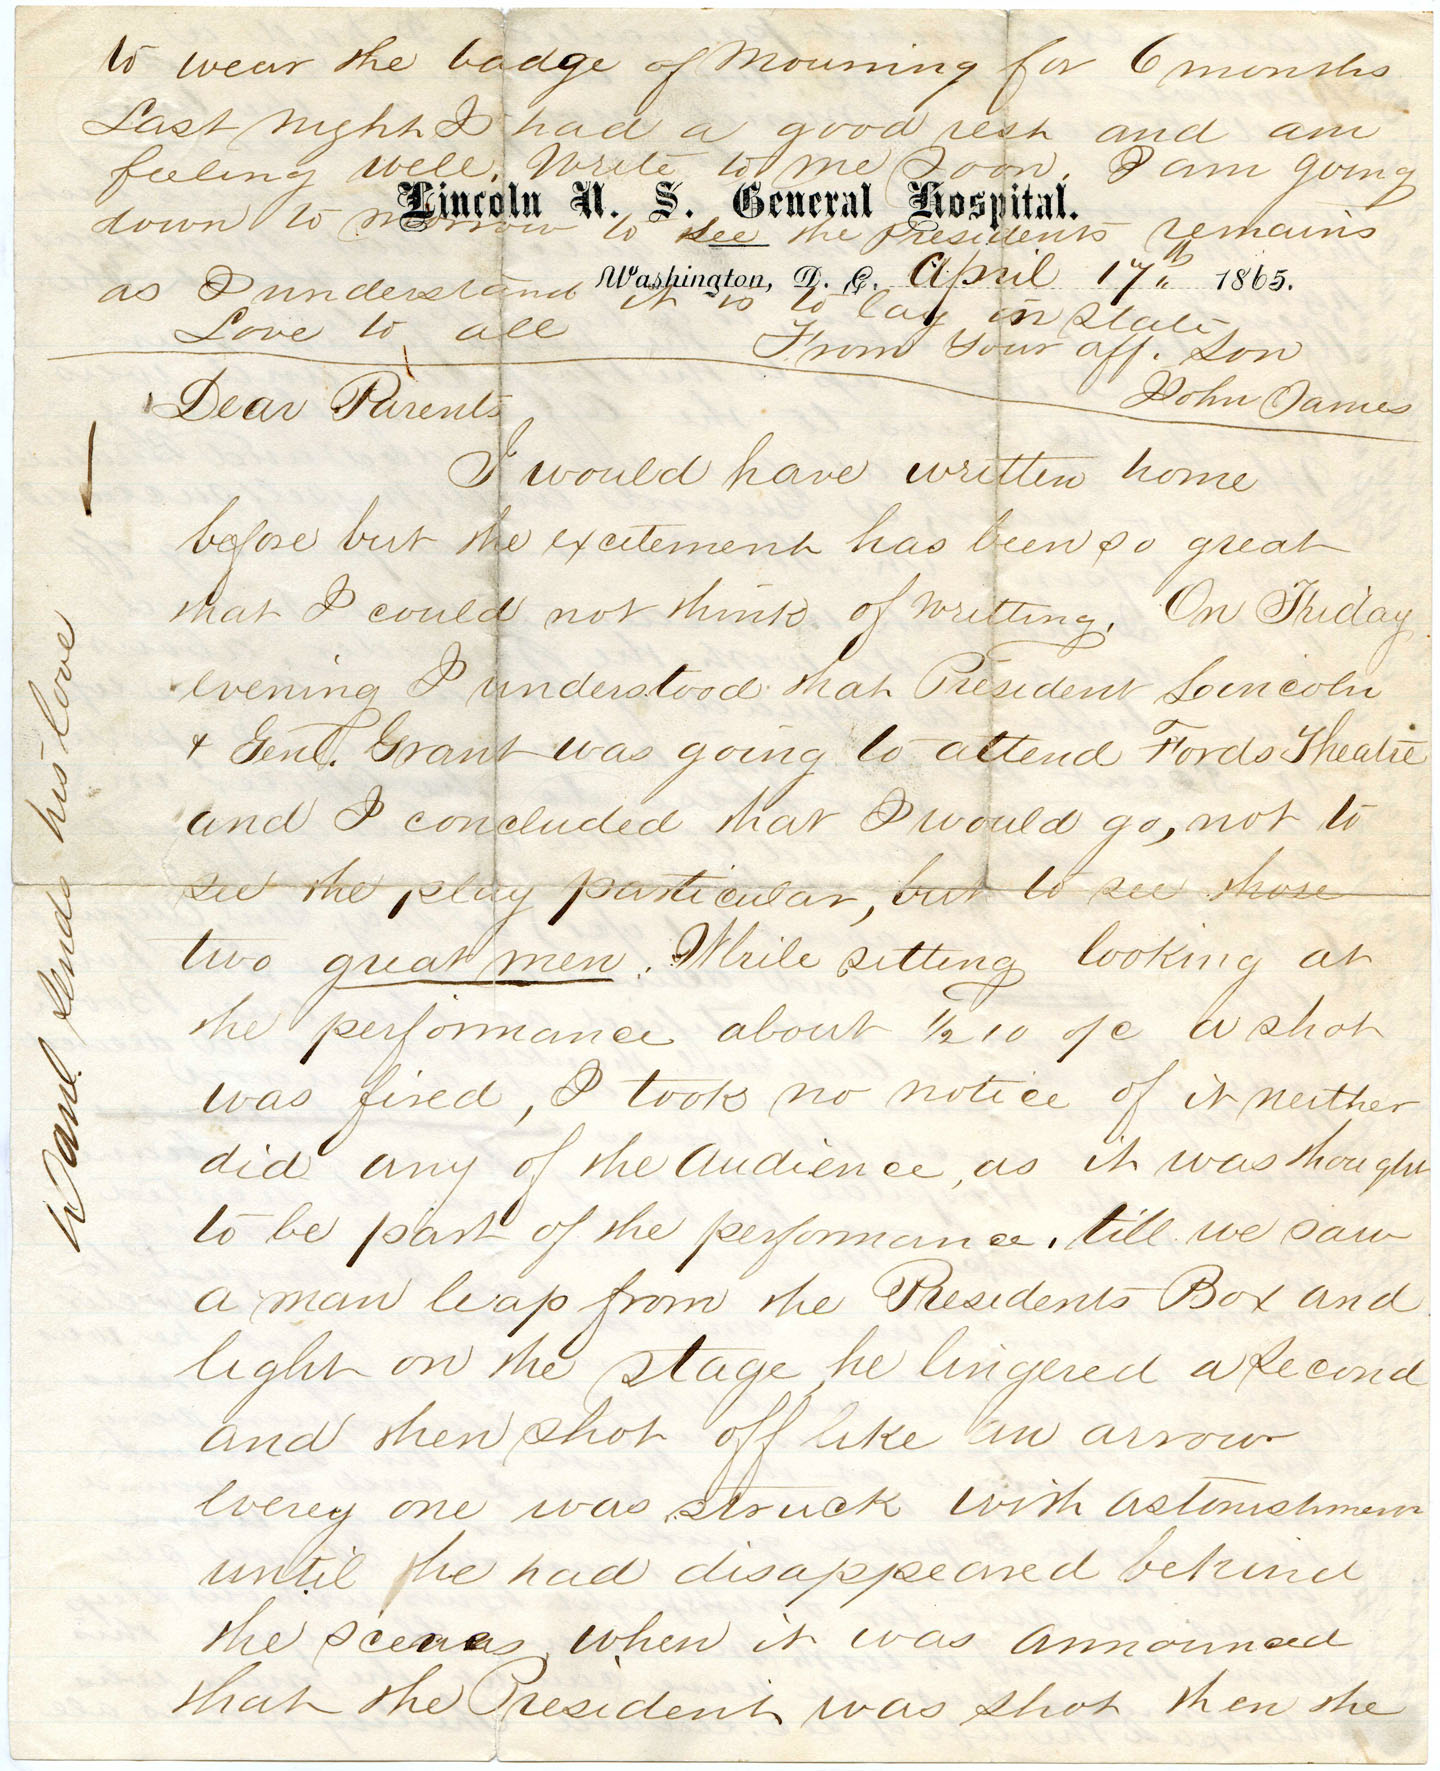 to wear the badge of Mourning for 6 months
Last night I had a good rest and am
feeling well. Write to me Soon. I am going
Lincoln U. S. General Hospital.
down to morrow to see the Presidents remains
Washington, D. C. April 17th 1865.
as I understand it is to lay in state
Love to all From Your aff. Son
John James
Dear Parents
I would have written home
before but the excitement has been so great
that I could not think of writting. On Friday
evening I understood that President Lincoln
& Genl. Grant was going to attend Fords Theatre
and I concluded that I would go, not to
see the play particular, but to see those
two great men. While setting looking at
the performance about ½ 10 o/c a shot
was fired, I took no notice of it neither
did any of the Audience, as it was thought
to be part of the performance. till we saw
a man leap from the Presidents Box and
light on the stage, he lingered a second
and then shot off like an arrow
everey one was struck with astonishment
until he had disappeared behind
the scenes, when it was announced
that the President was shot then the
sends his love